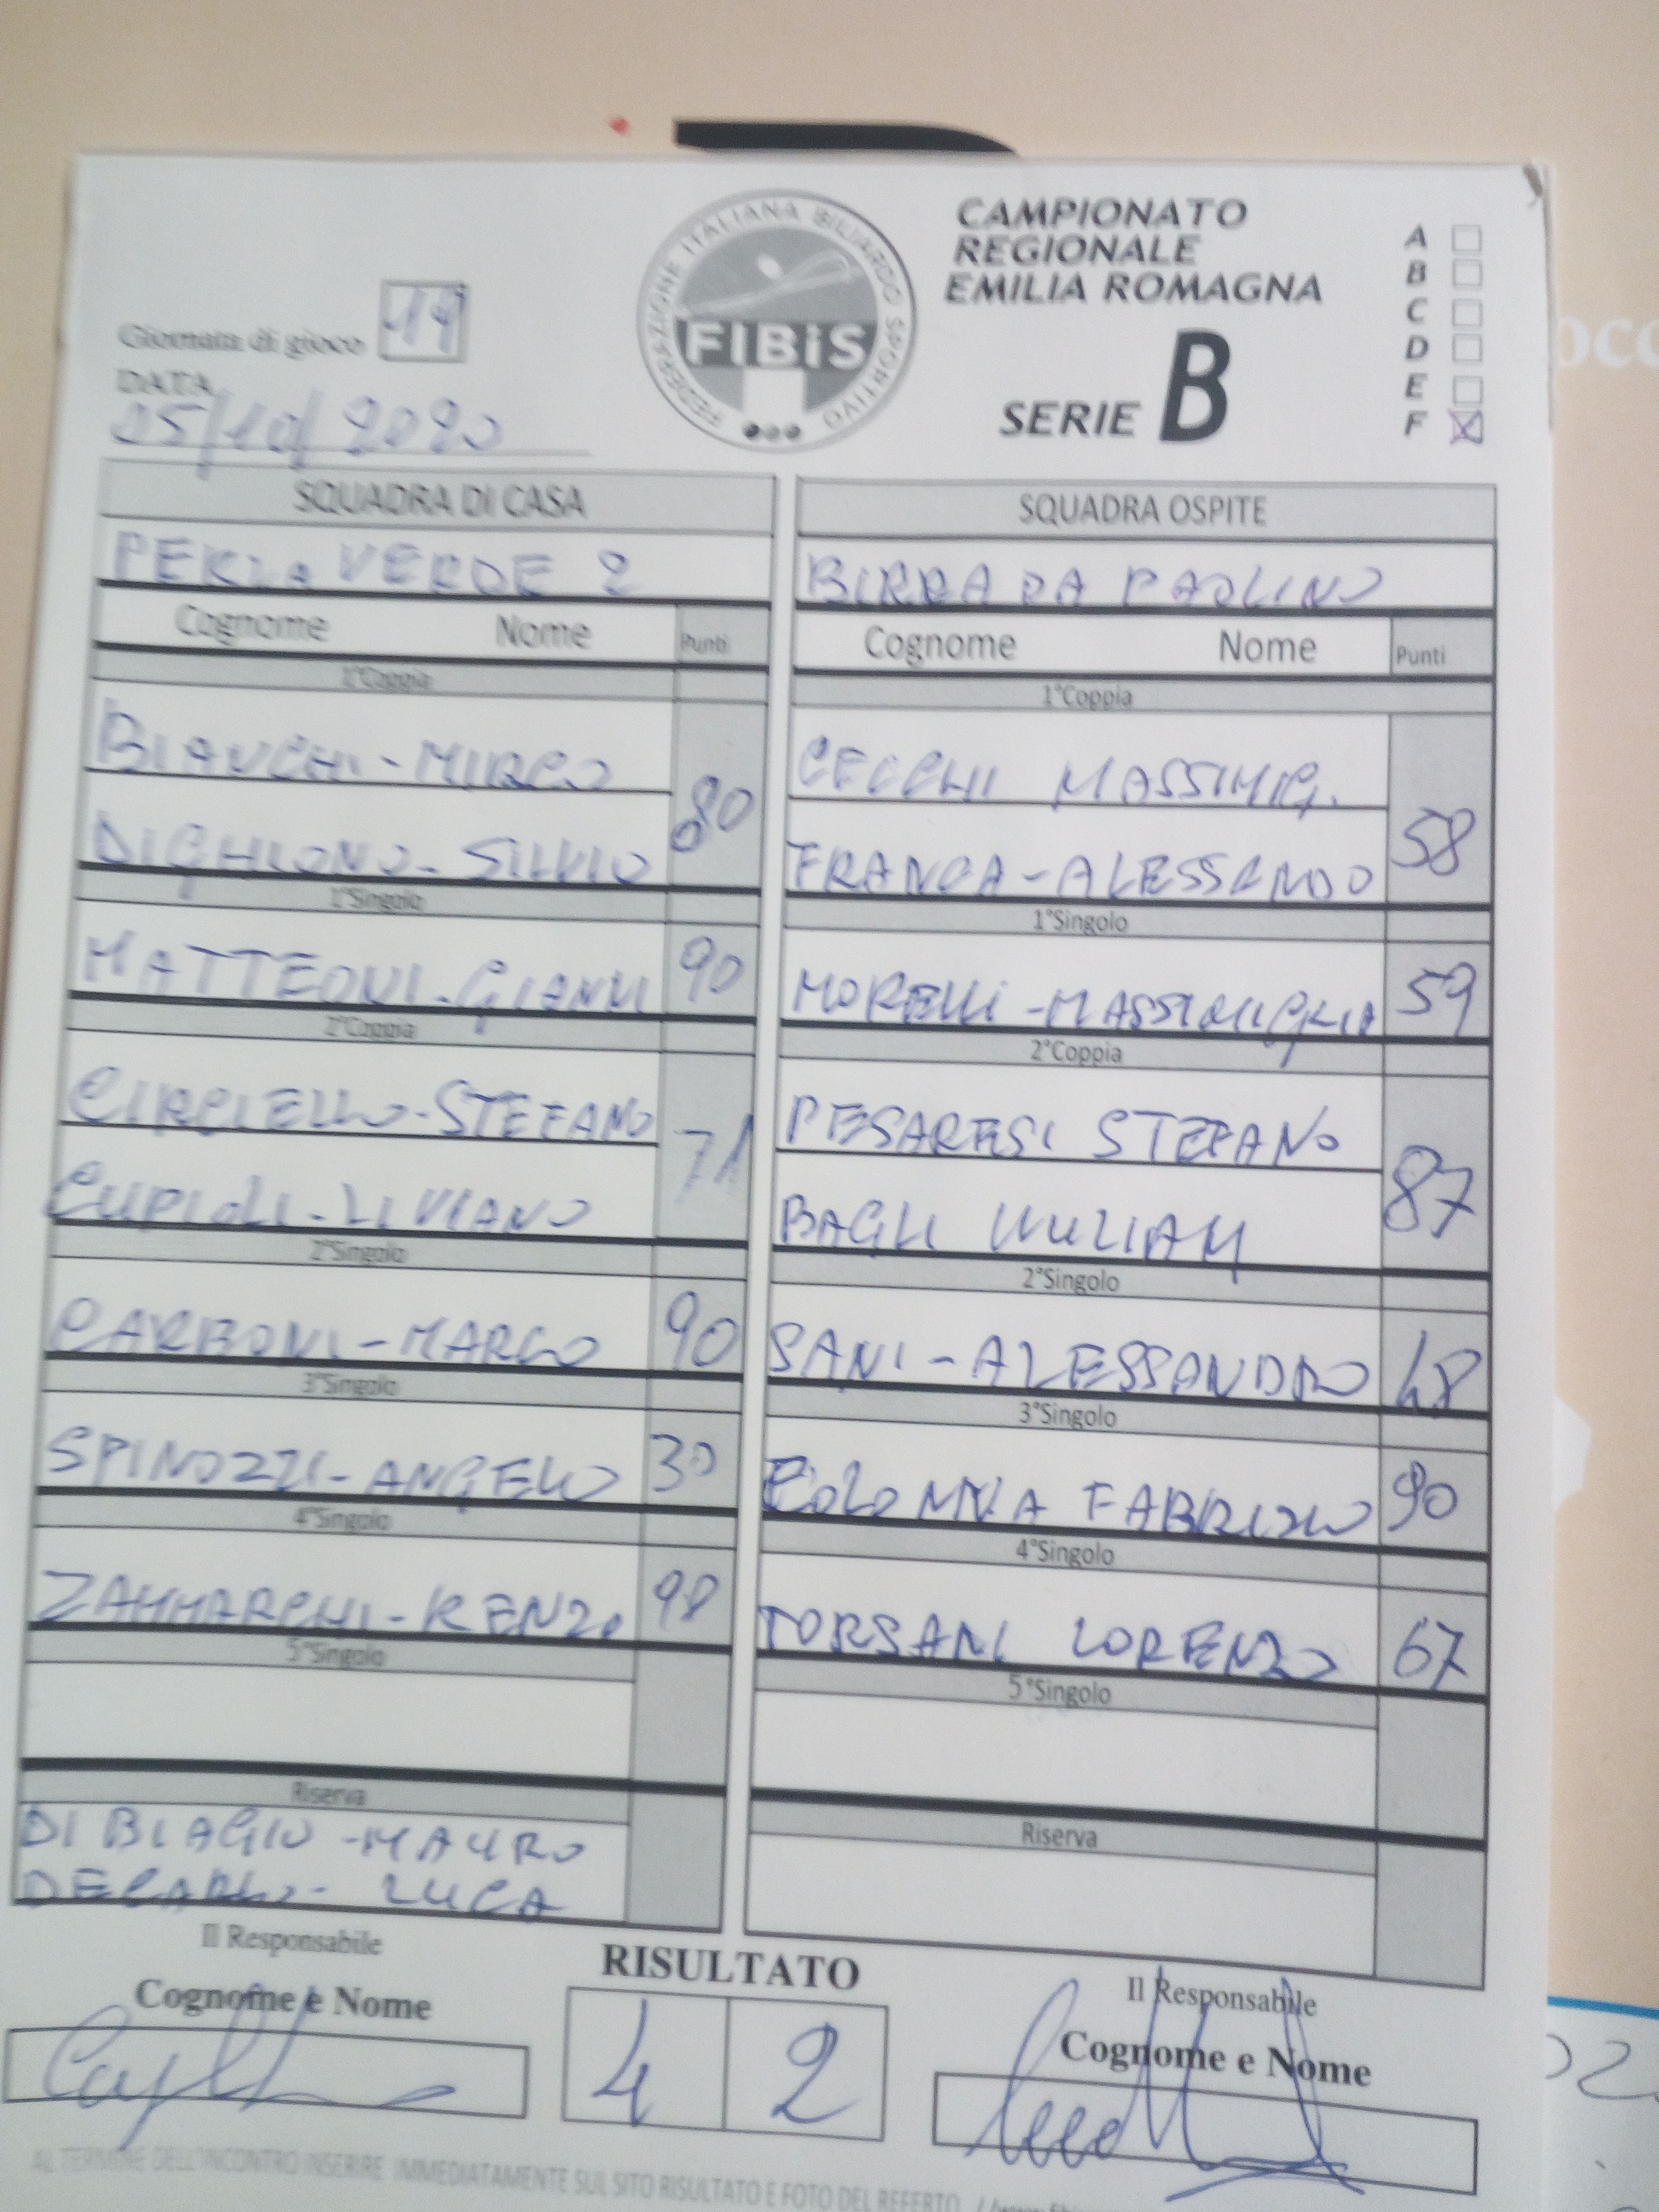 FEDERAZIONE ITALIANA BILIARDO SPORTIVO
FIBiS
CAMPIONATO
REGIONALE
EMILIA ROMAGNA
SERIE B
A
B
C
D
E
F X
Giornata di gioco
DATA
SQUADRA DI CASA
PERLA VERDE 2
Cognome Nome Punti
1°Coppia
BIANCHI-MIRCO
80
DIGHIONO-SILVIO
1°Singolo
MATTEONI-GIANNI 90
2°Coppia
CIRCIELLO-STEFANO
71
CUPIOLI-LIVIANO
2°Singolo
CARBONI-MARCO 90
3°Singolo
SPINOZZI-ANGELO 30
4°Singolo
ZAMMARCHI-RENZO 98
5°Singolo
Riserva
DI BIAGIO-MAURO
DECARLO-LUCA
SQUADRA OSPITE
BIRRA DA PAOLINO
Cognome Nome Punti
1°Coppia
CECCHI MASSIMIG.
58
FRANCA-ALESSANDO
1°Singolo
MORELLI-MASSIMIGLIA 59
2°Coppia
PESARESI STEFANO
87
BAGLI WILLIAM
2°Singolo
SANI-ALESSANDRO 48
3°Singolo
COLONNA FABRIZIO 90
4°Singolo
TORSANI LORENZO 67
5°Singolo
Riserva
Il Responsabile
Cognome e Nome
RISULTATO
4 2
Il Responsabile
Cognome e Nome
AL TERMINE DELL'INCONTRO INSERIRE IMMEDIATAMENTE SUL SITO RISULTATO E FOTO DEL REFERTO